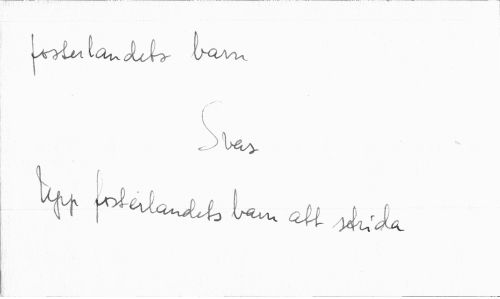 fosterlandets barn
Svas
Upp fosterlandets barn att strida